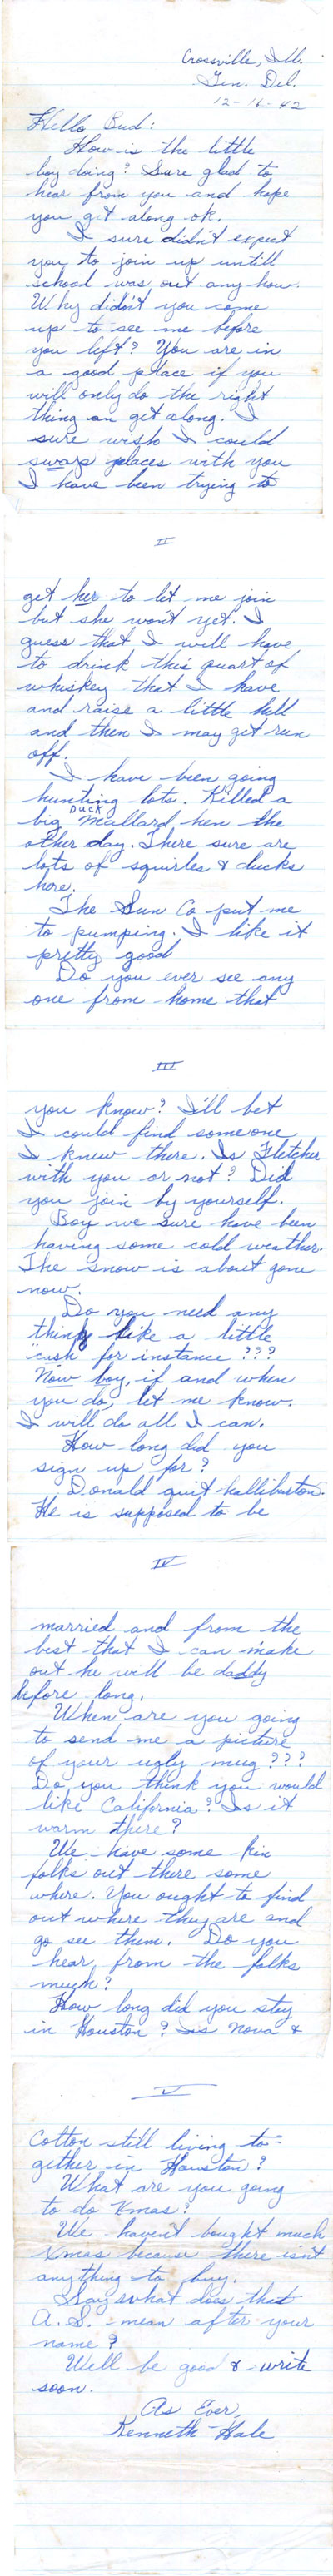 Crossville, Ill.
Gen. Del.
12-16-42
Hello Bud:
How is the little
boy doing? Sure glad to
hear from you and hope
you get along ok.
I sure didn't expect
you to join up untill
school was out any how.
Why didn't you come
up to see me before
you left? You are in
a good place if you
will only do the right
thing an get along. I
sure wish I could
swap places with you
I have been trying to
II
get her to let me join
but she won't yet. I
guess that I will have
to drink this quart of
whiskey that I have
and raise a little hell
and then I may get run
off.
I have been going
hunting lots. Killed a
big Mallard DUCK hen the
other day. There sure are
lots of squirles & ducks
here.
The Sun Co put me
to pumping. I like it
pretty good
Do you ever see any
one from home that
III
you know? I'll bet
I could find someone
I knew there. Is Fletcher
with you or not? Did
you join by yourself.
Boy we sure have been
having some cold weather.
The snow is about gone
now.
Do you need any
thing like a little
"cash for instance???
Now boy, if and when
you do, let me know.
I will do all I can.
How long did you
sign up for?
Donald quit halliburton.
He is supposed to be
IV
married and from the
best that I can make
out he will be daddy
before long.
When are you going
to send me a picture
of your ugly mug???
Do you think you would
like California? Is it
warm there?
We have some kin
folks out there some
where. You ought to find
out where they are and
go see them. Do you
hear from the folks
much?
How long did you stay
in Houston? Is Nova &
V
Cotton still living to-
gether in Houston?
What are you going
to do Xmas?
We haven't bought much
Xmas because there isn't
anything to buy.
Say what does that
A.S. mean after your
name?
Well be good & write
soon.
As Ever,
Kenneth Hale